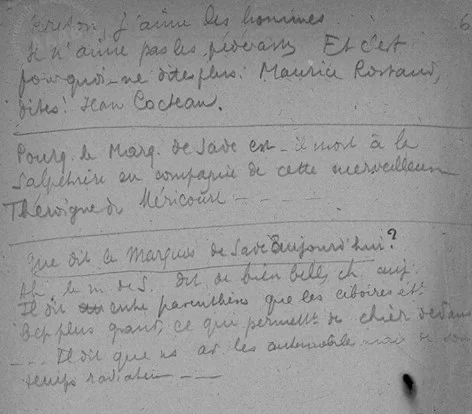 Breton, j'aime les hommes
Je n'aime pas les pédérastes Et c'est
pourquoi ne dites plus: Maurice Rostand,
dites: Jean Cocteau.
Pourq. le Marq. de Sade est-il mort à la
Salpêtrière en compagnie de cette merveilleuse
Théroigne de Méricourt - - - -
Que dit le Marquis de Sade aujourd'hui?
Ah, le m. de S. dit de bien belles ch. auj.
Il dit entre parenthèses que les ciboires
plus grands, ce qui permett. de chier dedans
- - - Il dit que les automobiles mais de son
temps radiateur - - -